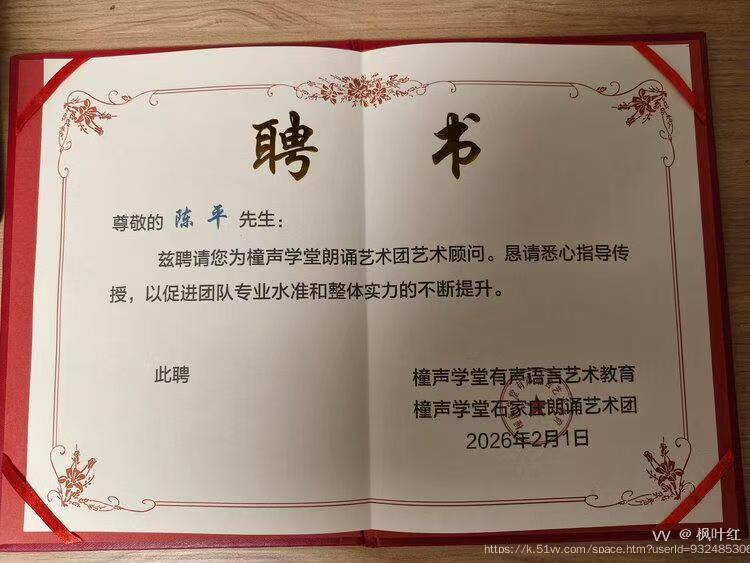 聘 书
尊敬的 陈平 先生：
兹聘请您为橦声学堂朗诵艺术团艺术顾问。恳请悉心指导传
授，以促进团队专业水准和整体实力的不断提升。
此聘
橦声学堂有声语言艺术教育
橦声学堂石家庄朗诵艺术团
2026年2月1日
@ 枫叶红
https://k.51vv.com/space.htm?userId=932485306